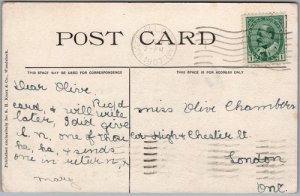 POST CARD
THIS SPACE MAY BE USED FOR CORRESPONDENCE
THIS SPACE IS FOR ADDRESS ONLY.
Dear Olive
Rec'd
card, & will write
later, I did give
h.n. one of those
ha, ha, & sends
one in return,
mary
Miss Olive Chambers
cor High & Chester St
London
Ont.